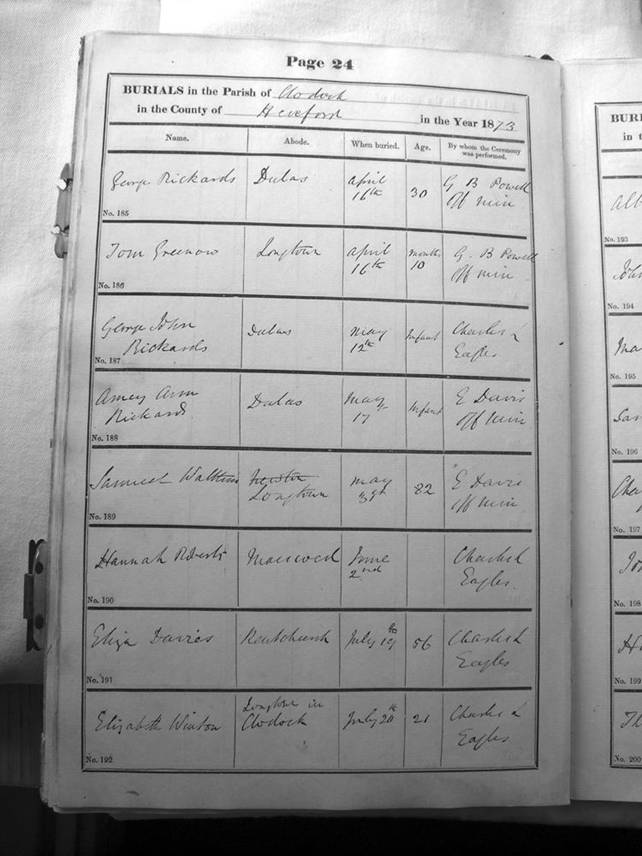 Page 24
BURIALS in the Parish of Clodock
in the County of Hereford in the Year 1873
Name. Abode. When buried. Age. By whom the Ceremony was performed.
George Rickards Dulas April 16th 30 G B Powell off min
No. 185
Tom Greenow Longtown April 16th months 10 G. B Powell off min
No. 186
George John Rickards Dulas May 12th Infant Charles L Eagles
No. 187
Amey Ann Rickards Dulas May 17 Infant E Davis off min
No. 188
Samuel Watkins Longtown May 82 E Davis off min
No. 189
Hannah Roberts June 2nd Charles L Eagles
No. 190
Eliza Davies Kentchurch July 19th 56 Charles L Eagles
No. 191
Elizabeth Winston Longtown in Clodock July 20th 21 Charles L Eagles
No. 192
BURI
in t
No. 193
No. 194
No. 195
No. 196
No. 197
No. 198
No. 199
No. 200